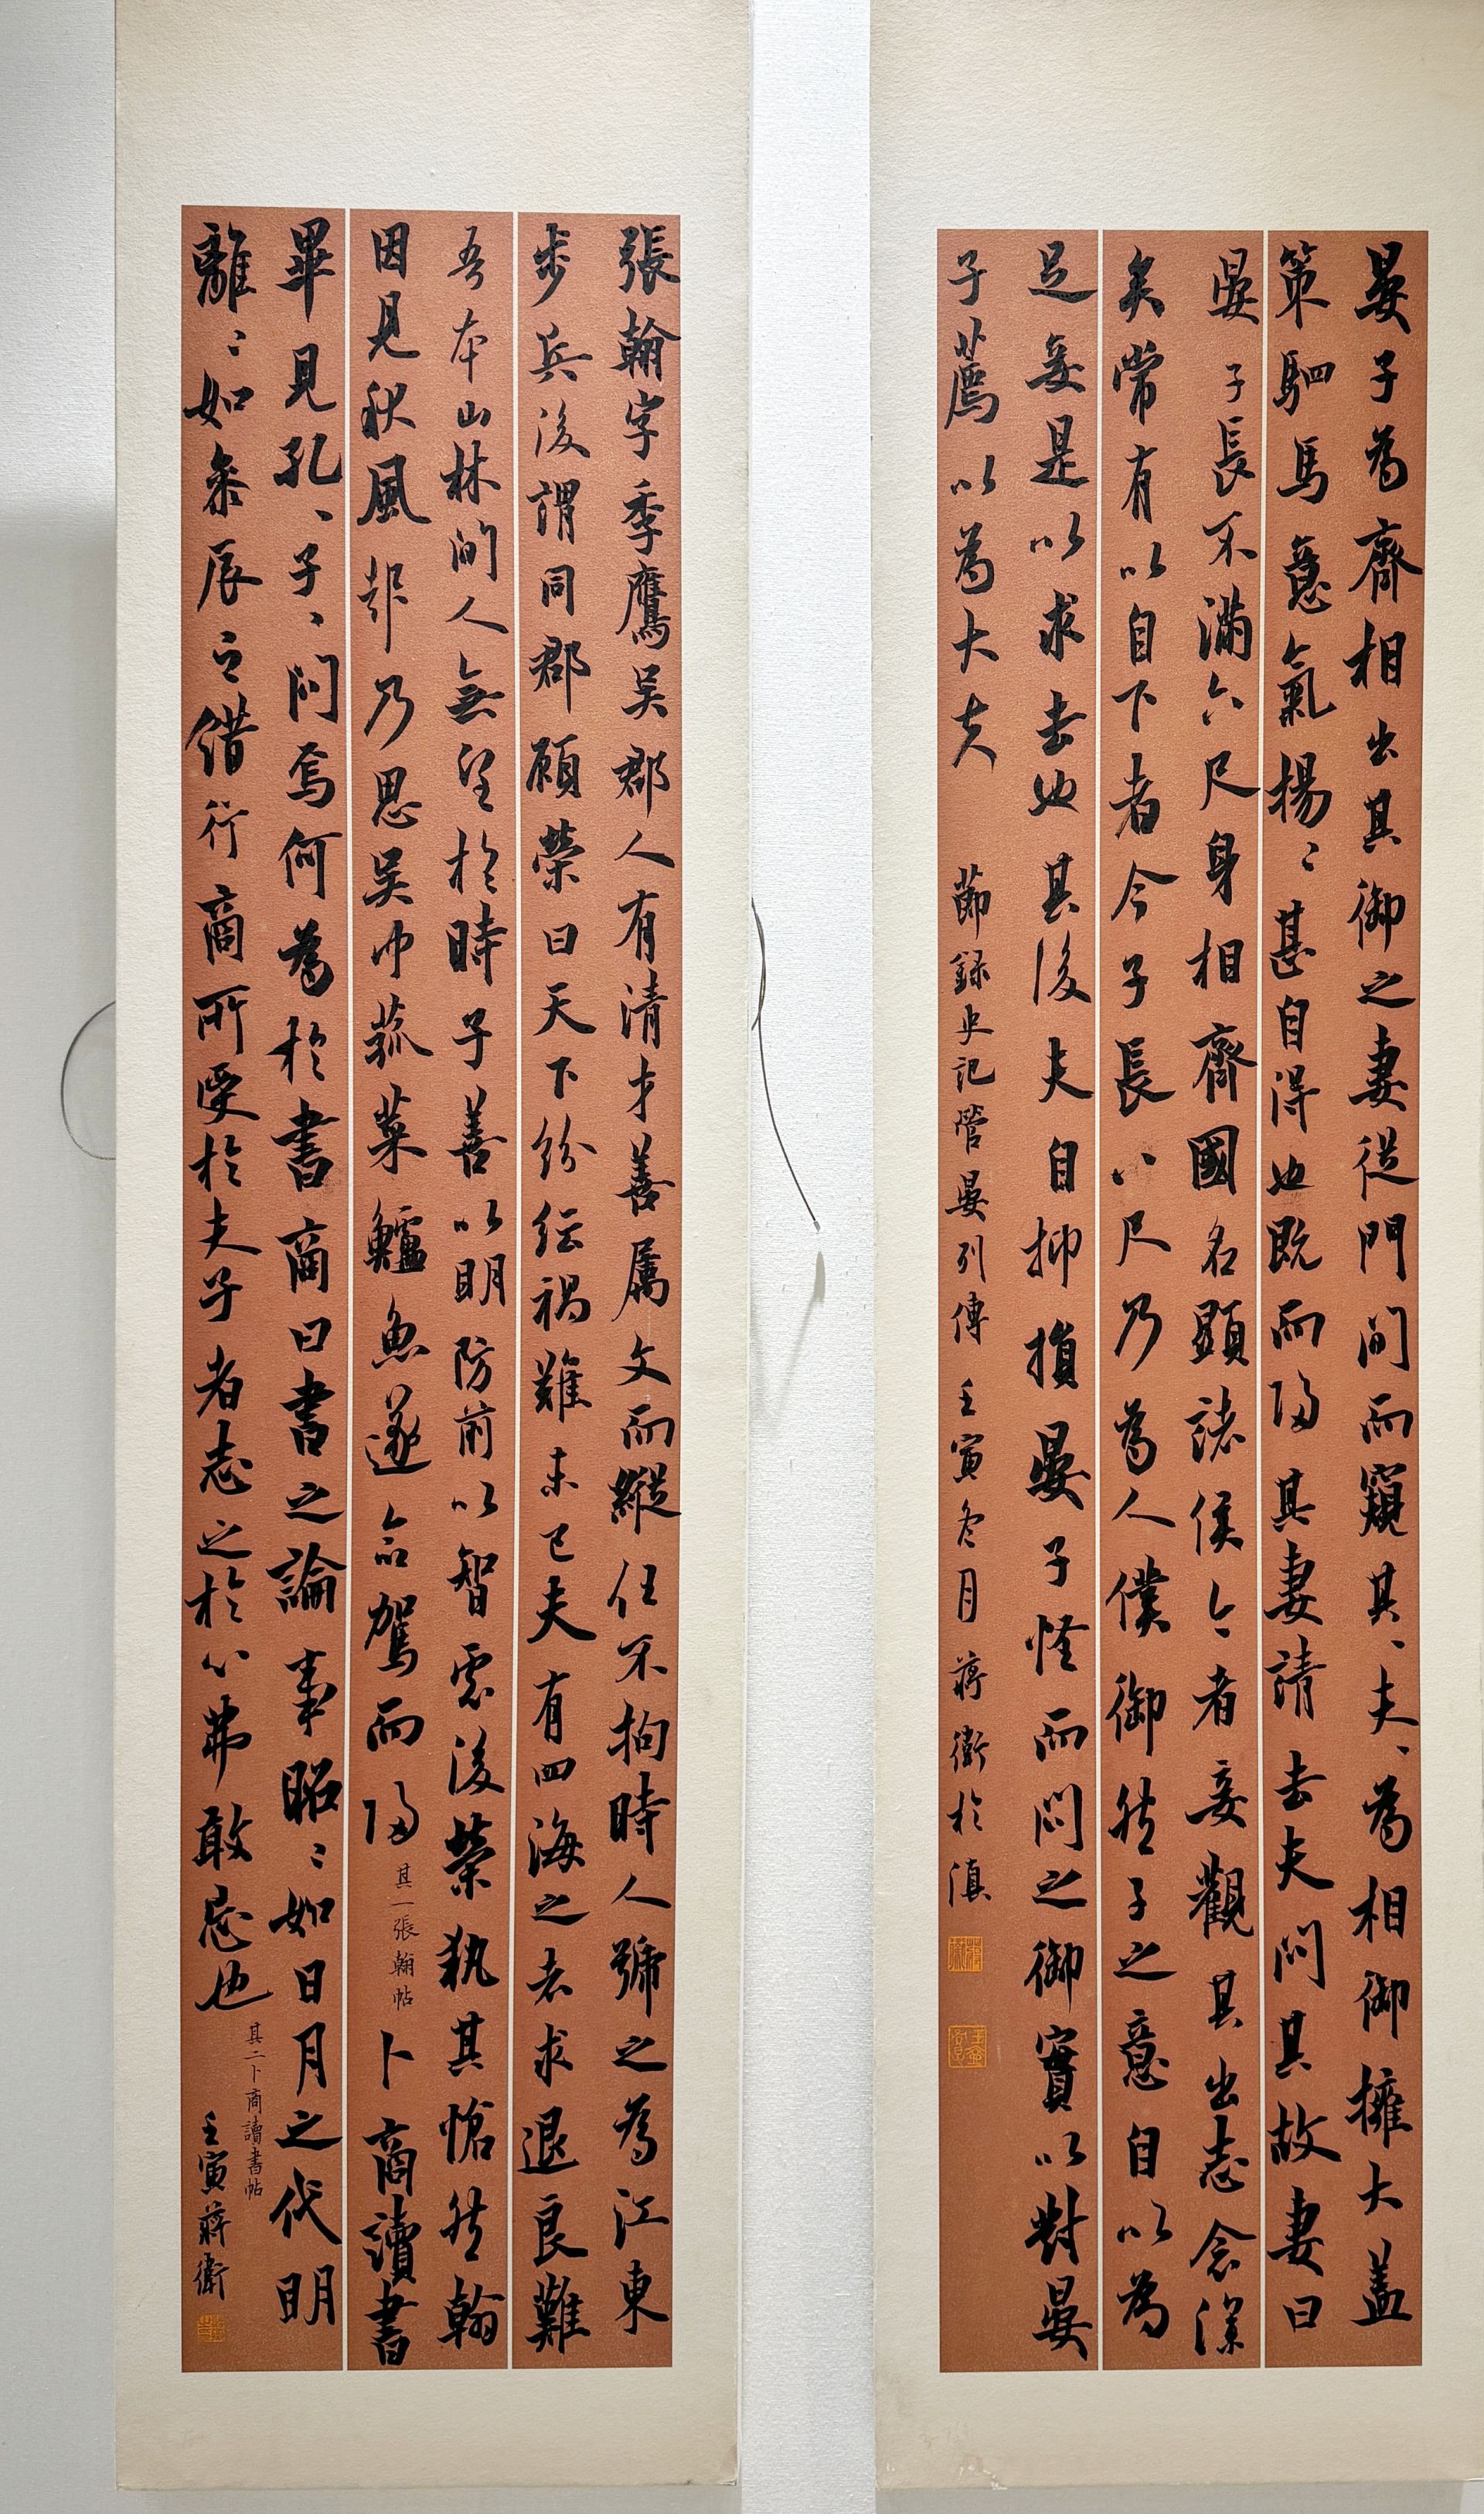 晏子為齊相出其御之妻從門间而窺其、夫、為相御擁大盖
策駟馬意氣揚〻甚自得也既而歸其妻請去夫问其故妻曰
晏子長不滿六尺身相齊國名顯諸侯今者妾觀其出志念深
矣常有以自下者今子長八尺乃為人僕御然子之意自以為
足妾是以求去也其後夫自抑損晏子怪而问之御實以對晏
子薦以為大夫
節録史記管晏列傳 壬寅冬月 蔣衛於滇
張翰字季鷹吴郡人有清才善属文而縱任不拘時人號之為江東
步兵後謂同郡顧榮曰天下纷纭禍難未已夫有四海之名求退良難
吾本山林间人無望於時子善以明防前以智慮後榮執其愴然翰
因見秋風起乃思吴中菰菜鱸魚遂命駕而歸
其一張翰帖
卜商讀書
畢見孔、子、问焉何為於書商曰書之論事昭〻如日月之代明
離〻如叅辰之错行商所受於夫子者志之於心弗敢忘也
其二卜商讀書帖
壬寅蔣衛